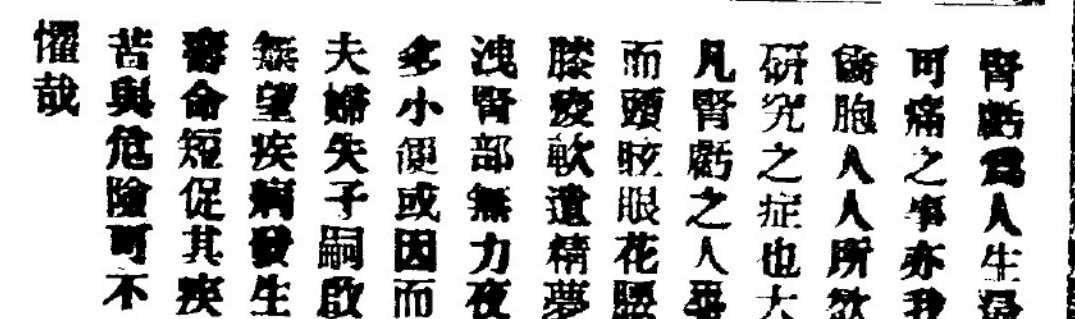 腎虧爲人生最
可痛之事亦我
僑胞人人所欲
研究之症也大
凡腎虧之人
而頭眩眼花腰
膝痠軟遺精夢
洩腎部無力夜
多小便或因而
夫婦失子嗣啟
無望疾病發生
壽命短促其痰
苦與危險可不
懼哉